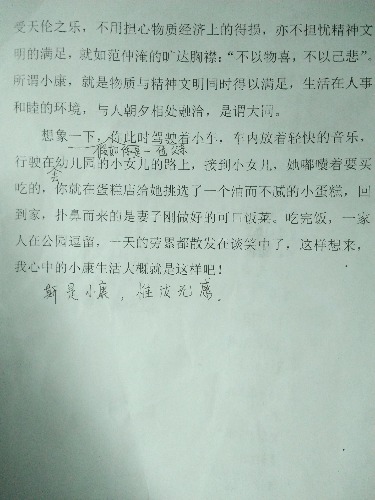 受天伦之乐，不用担心物质经济上的得损，亦不担忧精神文
明的满足，就如范仲淹的旷达胸襟：“不以物喜，不以己悲”。
所谓小康，就是物质与精神文明同时得以满足，生活在人事
和睦的环境，与人朝夕相处融洽，是谓大同。
想象一下，你此时驾驶着小车，车内放着轻快的音乐，
假如你是一位父亲
行驶在去幼儿园的小女儿的路上，接到小女儿，她嘟喽着要买
吃的，你就在蛋糕店给她挑选了一个油而不腻的小蛋糕，回
到家，扑鼻而来的是妻子刚做好的可口饭菜。吃完饭，一家
人在公园逗留，一天的劳累都散发在谈笑中了，这样想来，
我心中的小康生活大概就是这样吧！
斯是小康，